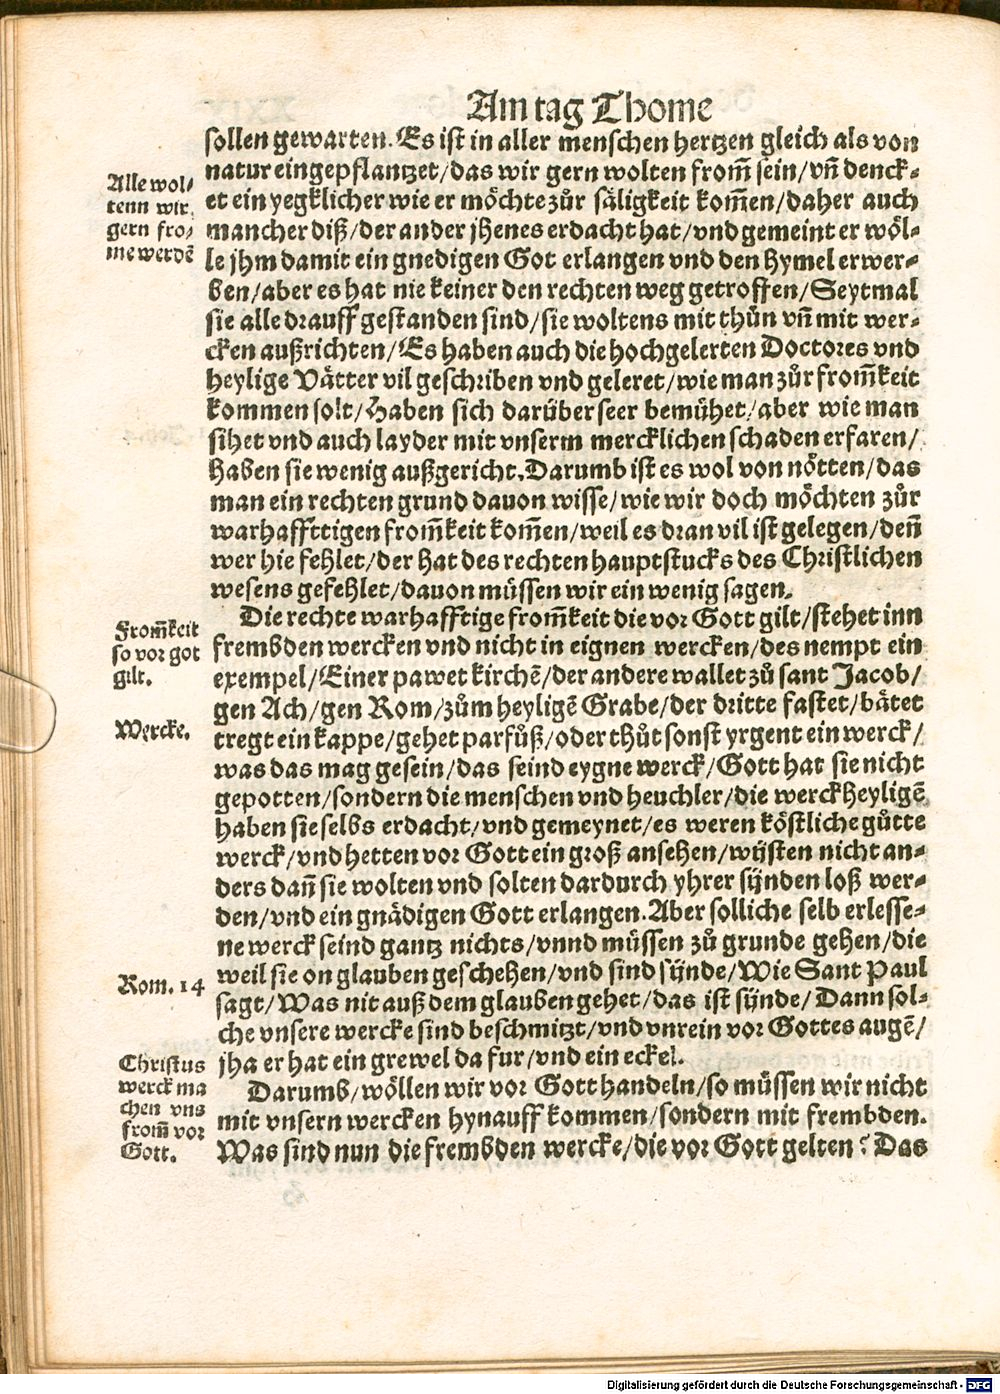 Am tag Thome
sollen gewarten. Es ist in aller menschen hertzen gleich als von
natur eingepflantzet/das wir gern wolten from̃ sein/vñ denck-
et ein yegklicher wie er möchte zůr säligkeit kom̃en/daher auch
mancher diß/der ander jhenes erdacht hat/vnd gemeint er wöl-
le jhm damit ein gnedigen Got erlangen vnd den hymel erwer-
ben/aber es hat nie keiner den rechten weg getroffen/Seytmal
sie alle drauff gestanden sind/sie woltens mit thůn vñ mit wer-
cken außrichten/Es haben auch die hochgelerten Doctores vnd
heylige Vätter vil geschriben vnd geleret/wie man zůr from̃keit
kommen solt/Haben sich darüber seer bemühet/aber wie man
sihet vnd auch layder mit vnserm mercklichen schaden erfaren/
haben sie wenig außgericht. Darumb ist es wol von nötten/das
man ein rechten grund dauon wisse/wie wir doch möchten zůr
warhaffttigen from̃keit kom̃en/weil es dran vil ist gelegen/deñ
wer hie fehlet/der hat des rechten hauptstucks des Christlichen
wesens gefehlet/dauon müssen wir ein wenig sagen.
Die rechte warhafftige from̃keit die vor Gott gilt/stehet inn
frembden wercken vnd nicht in eignen wercken/des nempt ein
exempel/Einer pawet kirchẽ/der andere wallet zů sant Jacob/
gen Ach/gen Rom/zům heyligẽ Grabe/der dritte fastet/bätet
tregt ein kappe/gehet parfůß/oder thůt sonst yrgent ein werck/
was das mag gesein/das seind eygne werck/Gott hat sie nicht
gepotten/sondern die menschen vnd heuchler/die werckheyligẽ
haben sie selbs erdacht/vnd gemeynet/es weren köstliche gůtte
werck/vnd hetten vor Gott ein groß ansehen/wijsten nicht an-
ders dañ sie wolten vnd solten dardurch yhrer sijnden loß wer-
den/vnd ein gnädigen Gott erlangen. Aber solliche selb erlesse-
ne werck seind gantz nichts/vnnd müssen zů grunde gehen/die
weil sie on glauben geschehen/vnd sind sijnde/Wie Sant Paul
sagt/Was nit auß dem glauben gehet/das ist sijnde/Dann sol-
che vnsere wercke sind beschmitzt/vnd vnrein vor Gottes augẽ/
jha er hat ein grewel da fur/vnd ein eckel.
Darumb/wöllen wir vor Gott handeln/so müssen wir nicht
mit vnsern wercken hynauff kommen/sondern mit frembden.
Was sind nun die frembden wercke/die vor Gott gelten? Das
Alle wol-
tenn wir
gern fro-
me werdẽ
From̃keit
so vor got
gilt.
Wercke.
Rom. 14
Christus
werck ma
chen vns
from̃ vor
Gott.
Digitalisierung gefördert durch die Deutsche Forschungsgemeinschaft - DFG